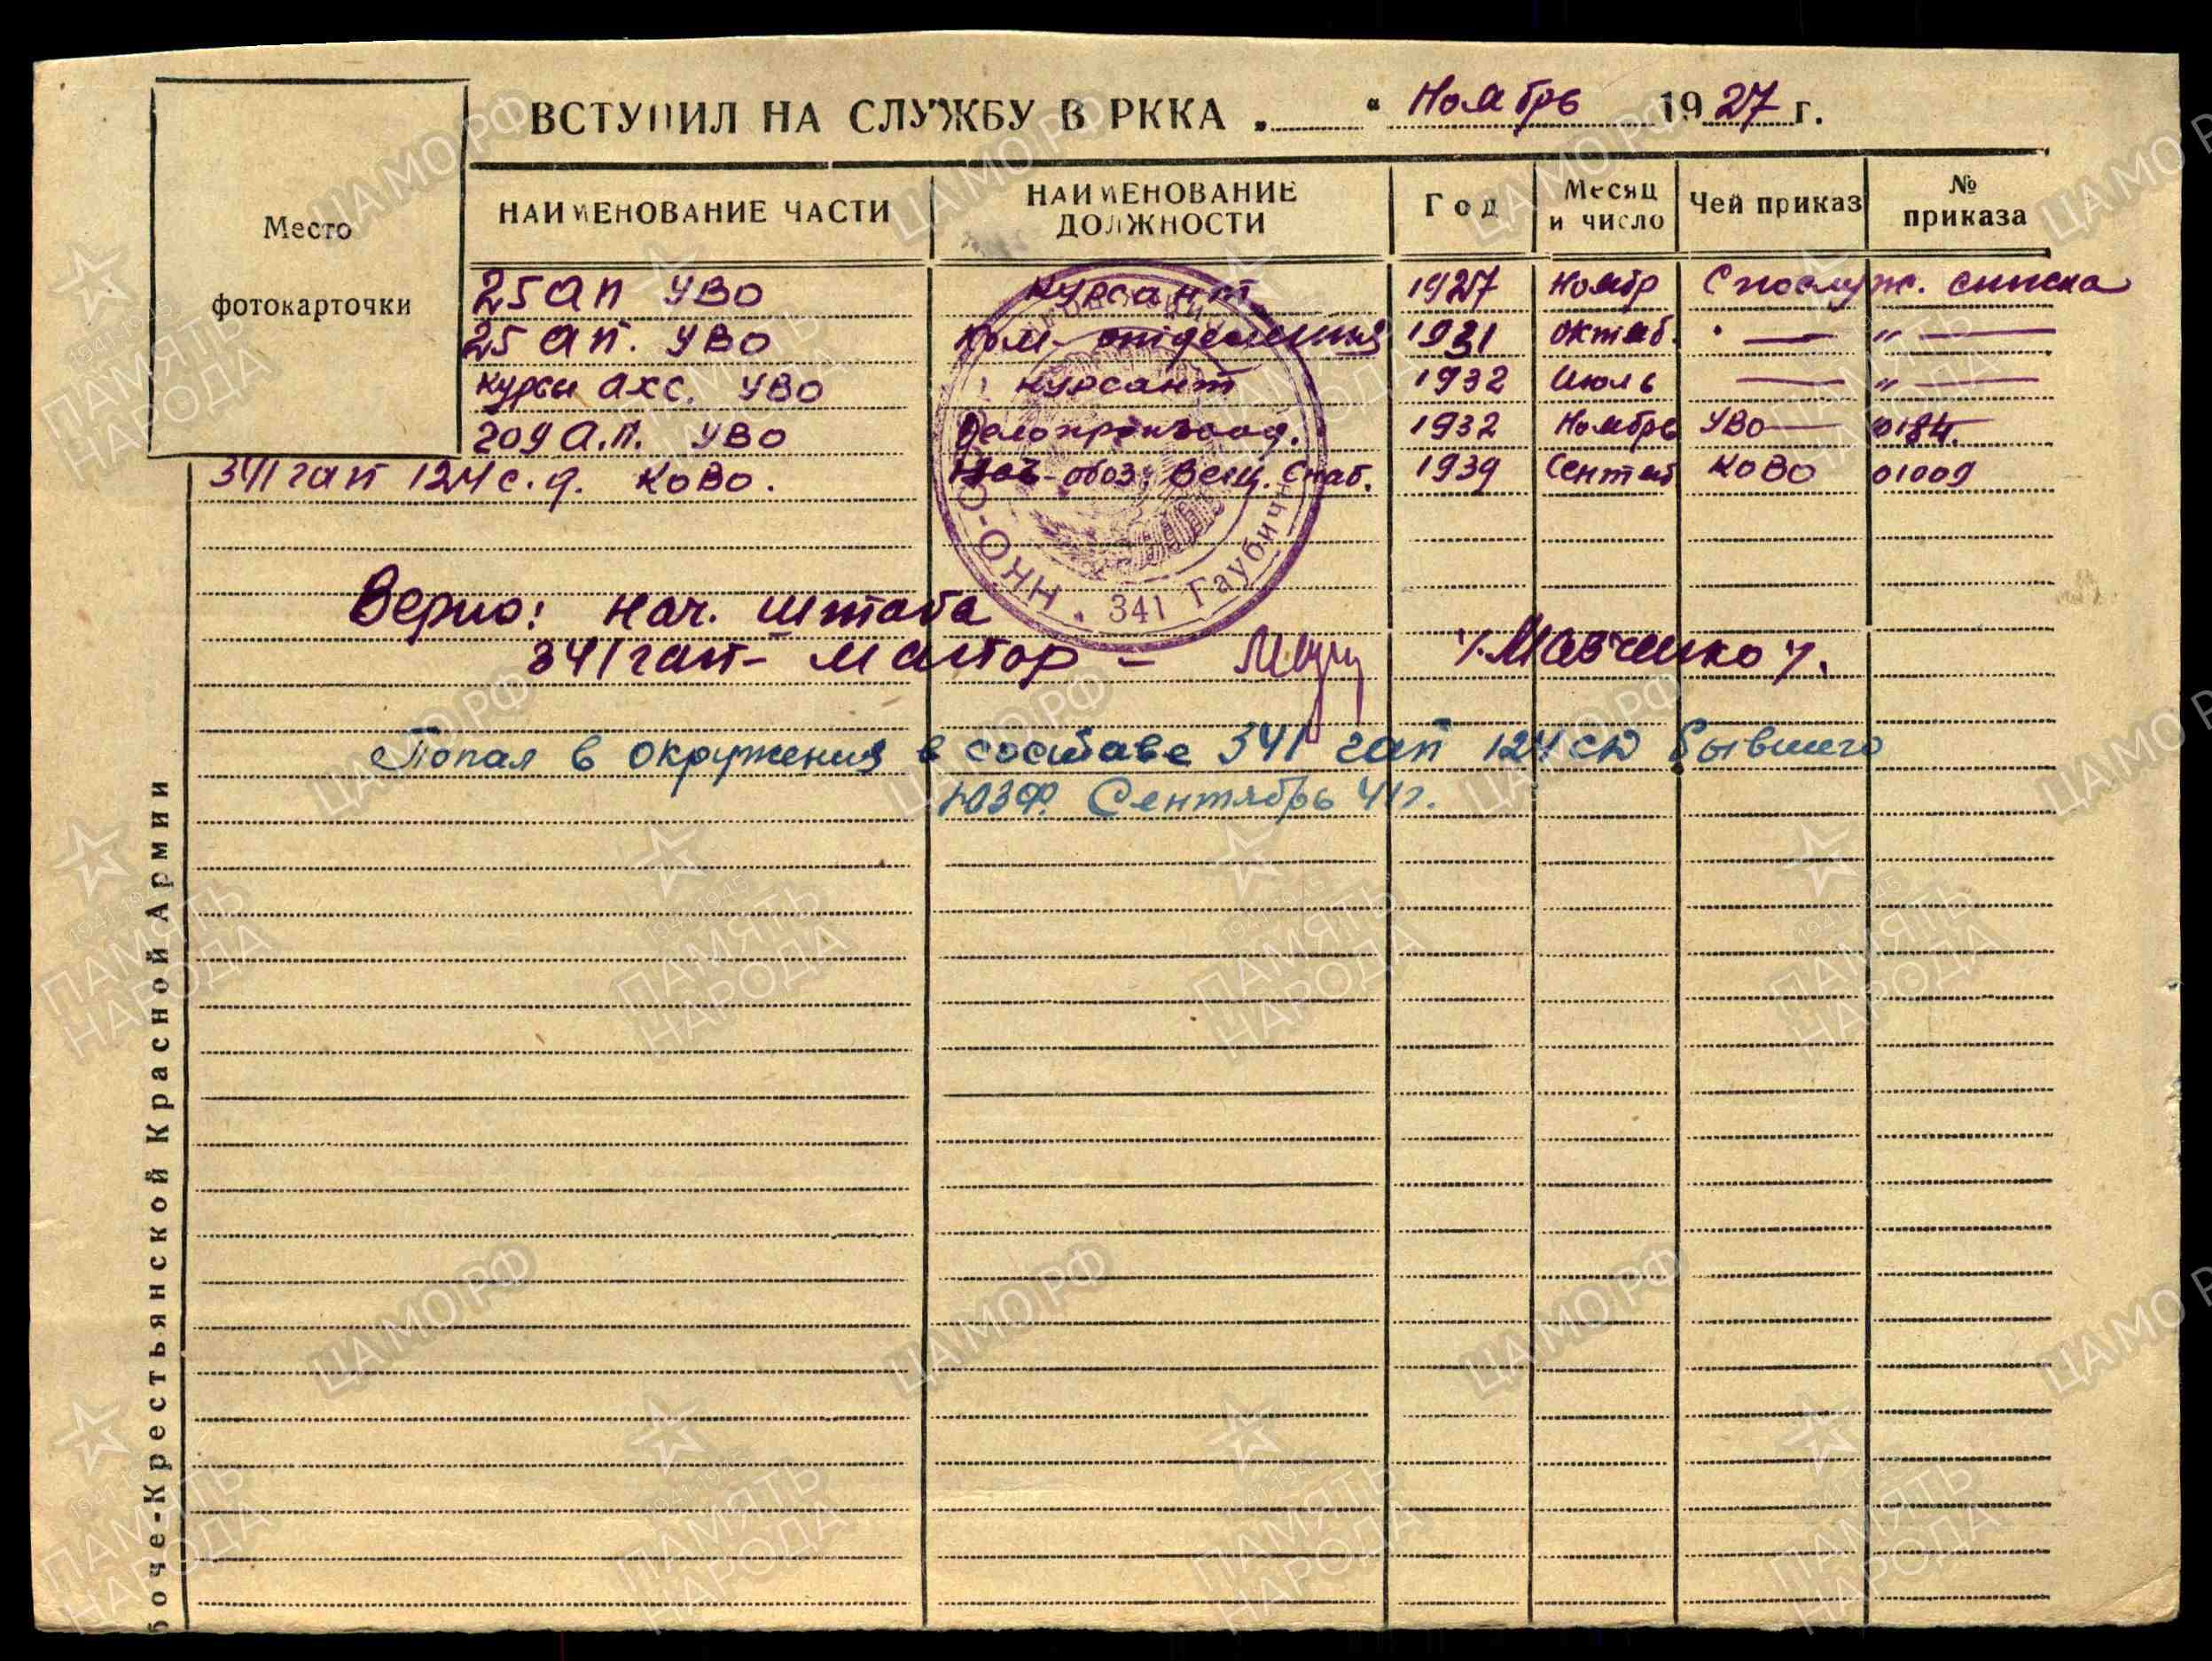 ВСТУПИЛ НА СЛУЖБУ В РККА „ “ Ноябрь 1927 г.
Место
фотокарточки
НАИМЕНОВАНИЕ ЧАСТИ
НАИМЕНОВАНИЕ ДОЛЖНОСТИ
Год
Месяц и число
Чей приказ
№ приказа
25 ап УВО курсант 1927 Ноябр С послуж. списка
25 ап. УВО Ком. отделения 1931 октяб. — „ —
Курсы АХС. УВО курсант 1932 Июль — „ —
209 А.П. УВО Делопроизвод. 1932 Ноябрь УВО 0184.
341 гап 124 с.д. КОВО. Нач обоз. Вещ. Снаб. 1939 Сентяб КОВО 01009
341 Гаубичн
Верно: нач. штаба
341 гап- майор -
Попал в окружения в составе 341 гап 124 сд бывшего
ЮЗФ. Сентябрь 41г.
боче-Крестьянской Красной Армии
ЦАМО.РФ
1941-1945
ПАМЯТЬ
НАРОДА